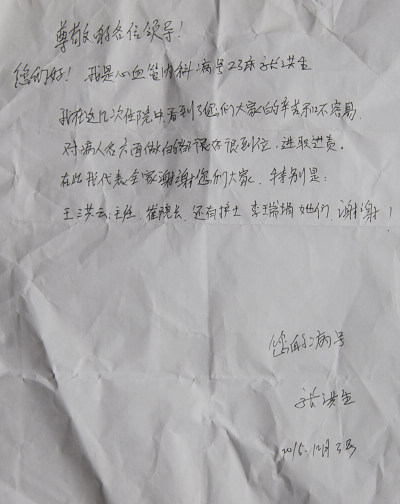 尊敬的各位领导!
您们好! 我是心血管内科病号23床张洪生
我在这几次住院中看到了您们大家的辛苦和不容易.
对病人各方面做的都很好很到位, 进取进责.
在此我代表全家谢谢您们大家. 特别是:
王洪云主任 崔院长 还有护士 李瑞 她们, 谢谢!
您的病号
张洪生
2015.12月